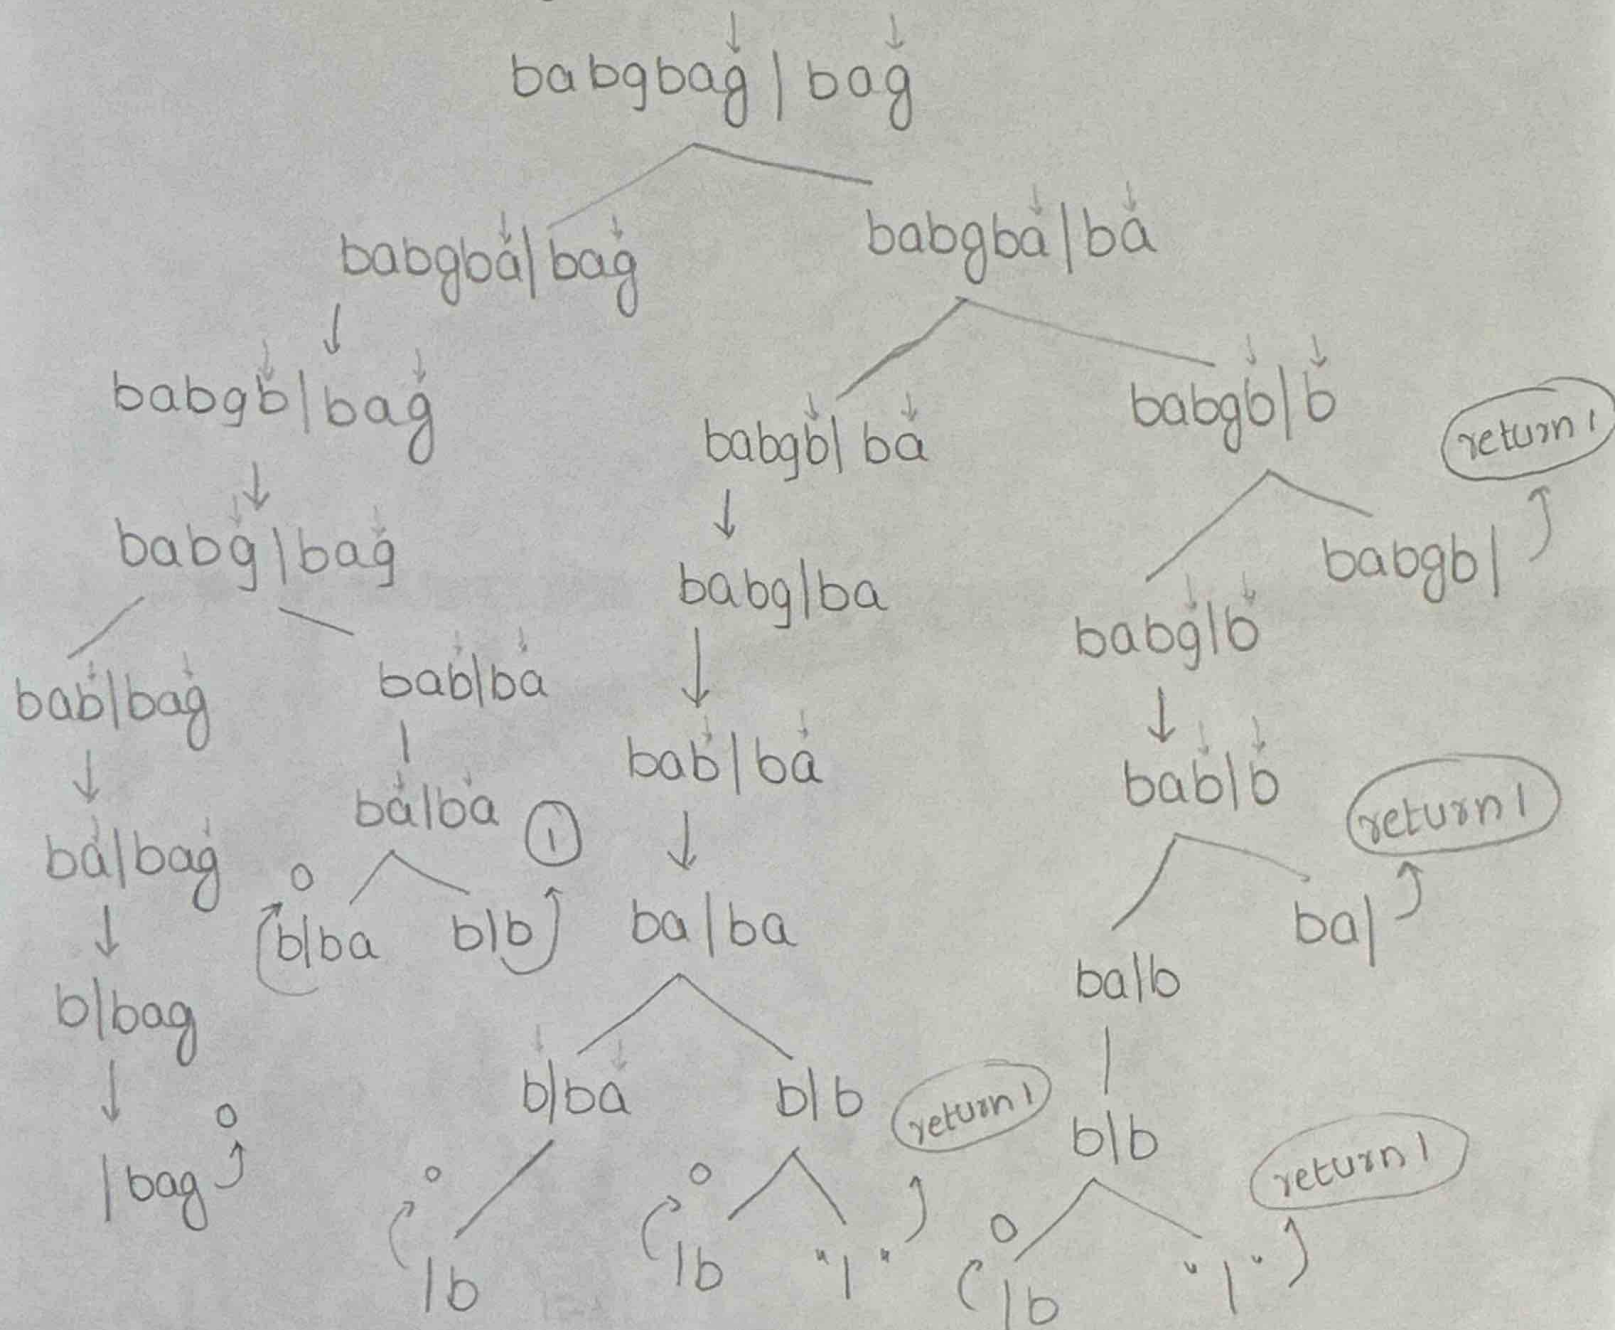 babgbag | bag
babgba | bag
babgba | ba
babgb | bag
babgb | ba
babgb | b
return 1
babg | bag
babg | ba
babgb |
babg | b
bab | bag
bab | ba
bab | ba
bab | b
return 1
ba | bag
ba | ba
1
0
b | ba
b | b
ba | ba
ba |
ba | b
b | bag
b | ba
b | b
return 1
b | b
0
| bag
0
| b
0
| b
" | "
0
| b
" | "
return 1